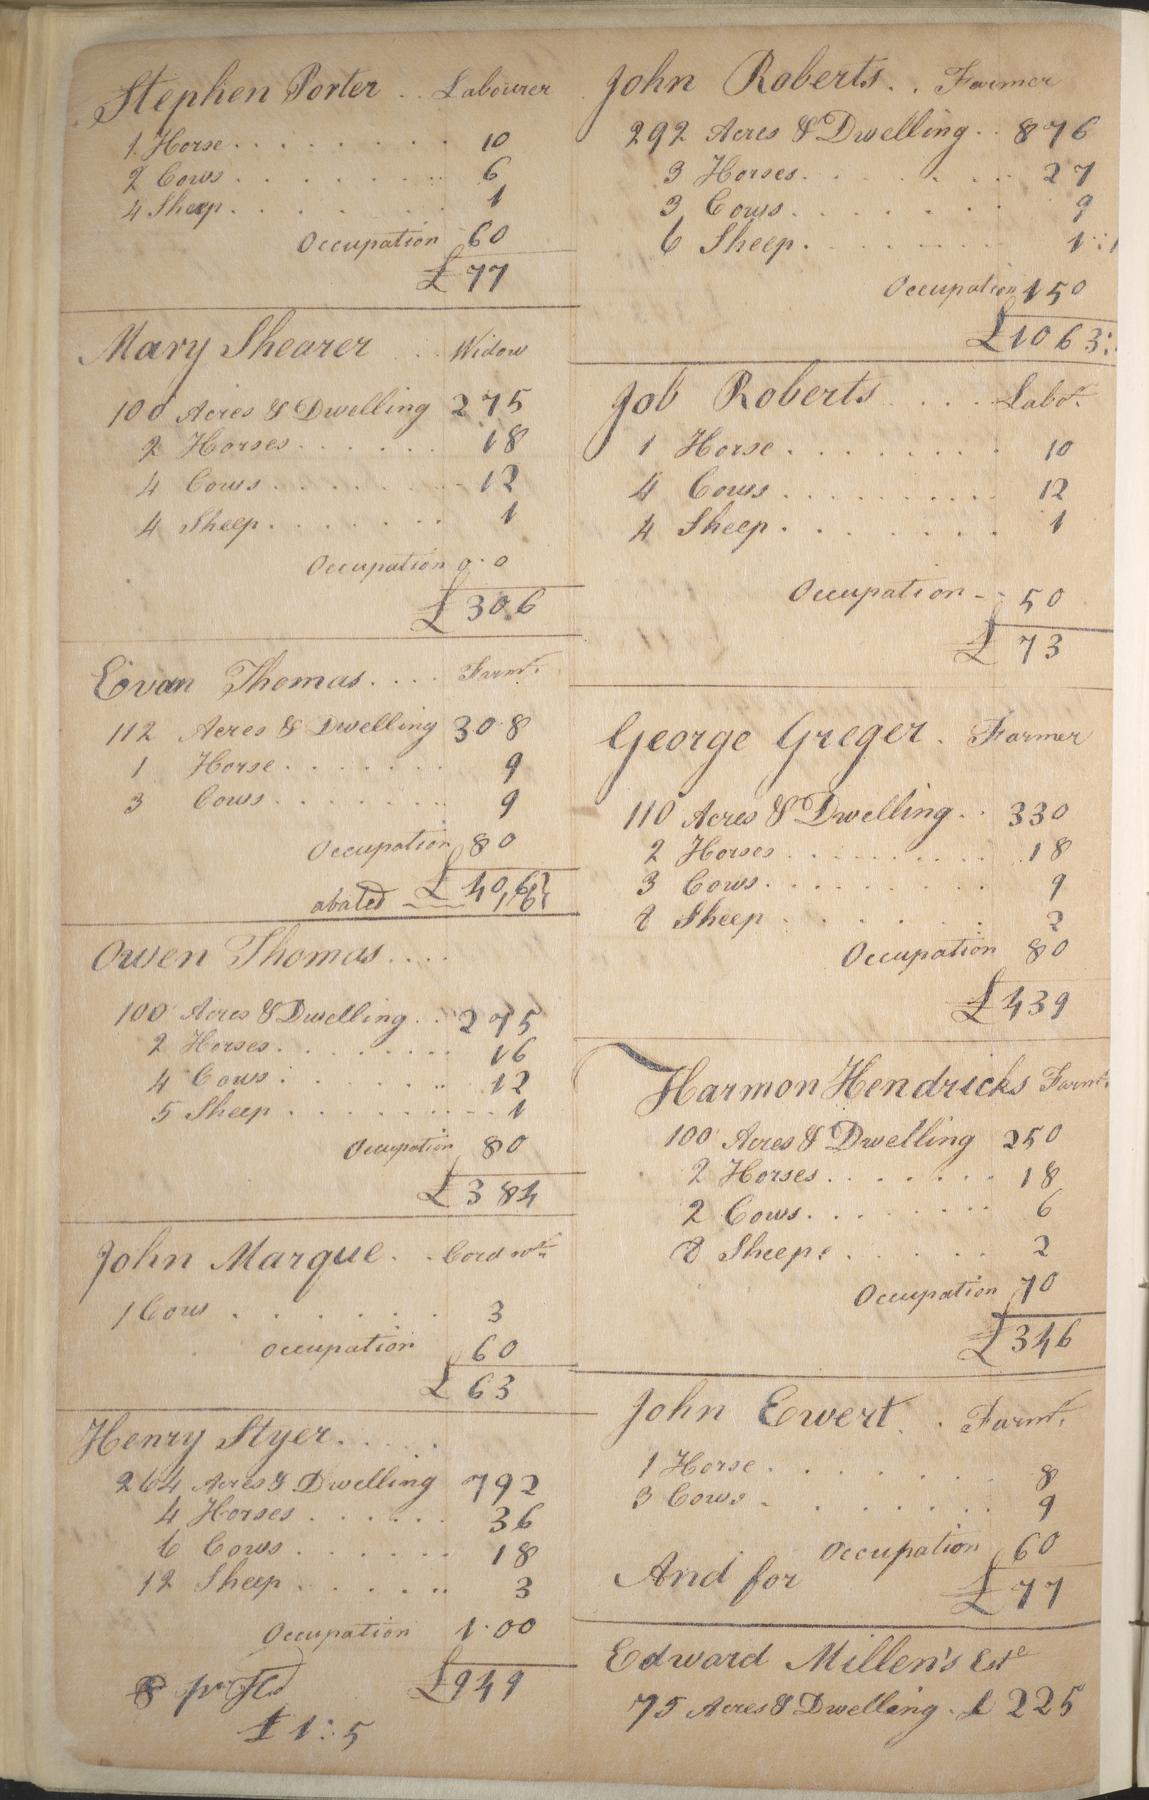 Stephen Porter . . Labourer
1 Horse . . . . . . . . . 10
2 Cows . . . . . . . . . 6
4 Sheep . . . . . . . . 1
Occupation 60
£ 77
Mary Shearer . . Widow
100 Acres & Dwelling 275
2 Horses . . . . . . 18
4 Cows . . . . . . . . 12
4 Sheep . . . . . . . 1
Occupation 0.0
£ 306
Evan Thomas . . . . Farmr.
112 Acres & Dwelling 308
1 Horse . . . . . . . 9
3 Cows . . . . . . . . 9
Occupation 80
£ 406
abated
Owen Thomas . . . .
100 Acres & Dwelling . . 275
2 Horses . . . . . . . . 16
4 Cows . . . . . . 12
5 Sheep . . . . . . . . . 1
Occupation 80
£ 384
John Marque . . Cordwr.
1 Cow . . . . . . . 3
Occupation 60
£ 63
Henry Styer . . . . .
264 Acres & Dwelling 792
4 Horses . . . . . . 36
6 Cows . . . . . . . 18
12 Sheep . . . . . . 3
Occupation 1.00
£ 949
8 pr
£ 1 : 5
John Roberts . . Farmer
292 Acres & Dwelling . . 876
3 Horses . . . . . . . . 27
3 Cows . . . . . . . 9
6 Sheep . . . . . . . 1 : 1
Occupation 150
£1063 :
Job Roberts . . . . Labr.
1 Horse . . . . . . . . 10
4 Cows . . . . . . . . . 12
4 Sheep . . . . . . . 1
Occupation - - 50
£ 73
George Greger . Farmer
110 Acres & Dwelling . . 330
2 Horses . . . . . . . . . 18
3 Cows . . . . . . . . . 9
8 Sheep . . . . . . . 2
Occupation 80
£439
Harmon Hendricks Farmr.
100 Acres & Dwelling 250
2 Horses . . . . . . . 18
2 Cows . . . . . . . . 6
8 Sheeps . . . . . . 2
Occupation 70
£346
John Ewert . . Farmr.
1 Horse . . . . . . . . 8
3 Cows . . . . . . . . 9
Occupation 60
And for £ 77
Edward Millen's Este
75 Acres & Dwelling . £ 225